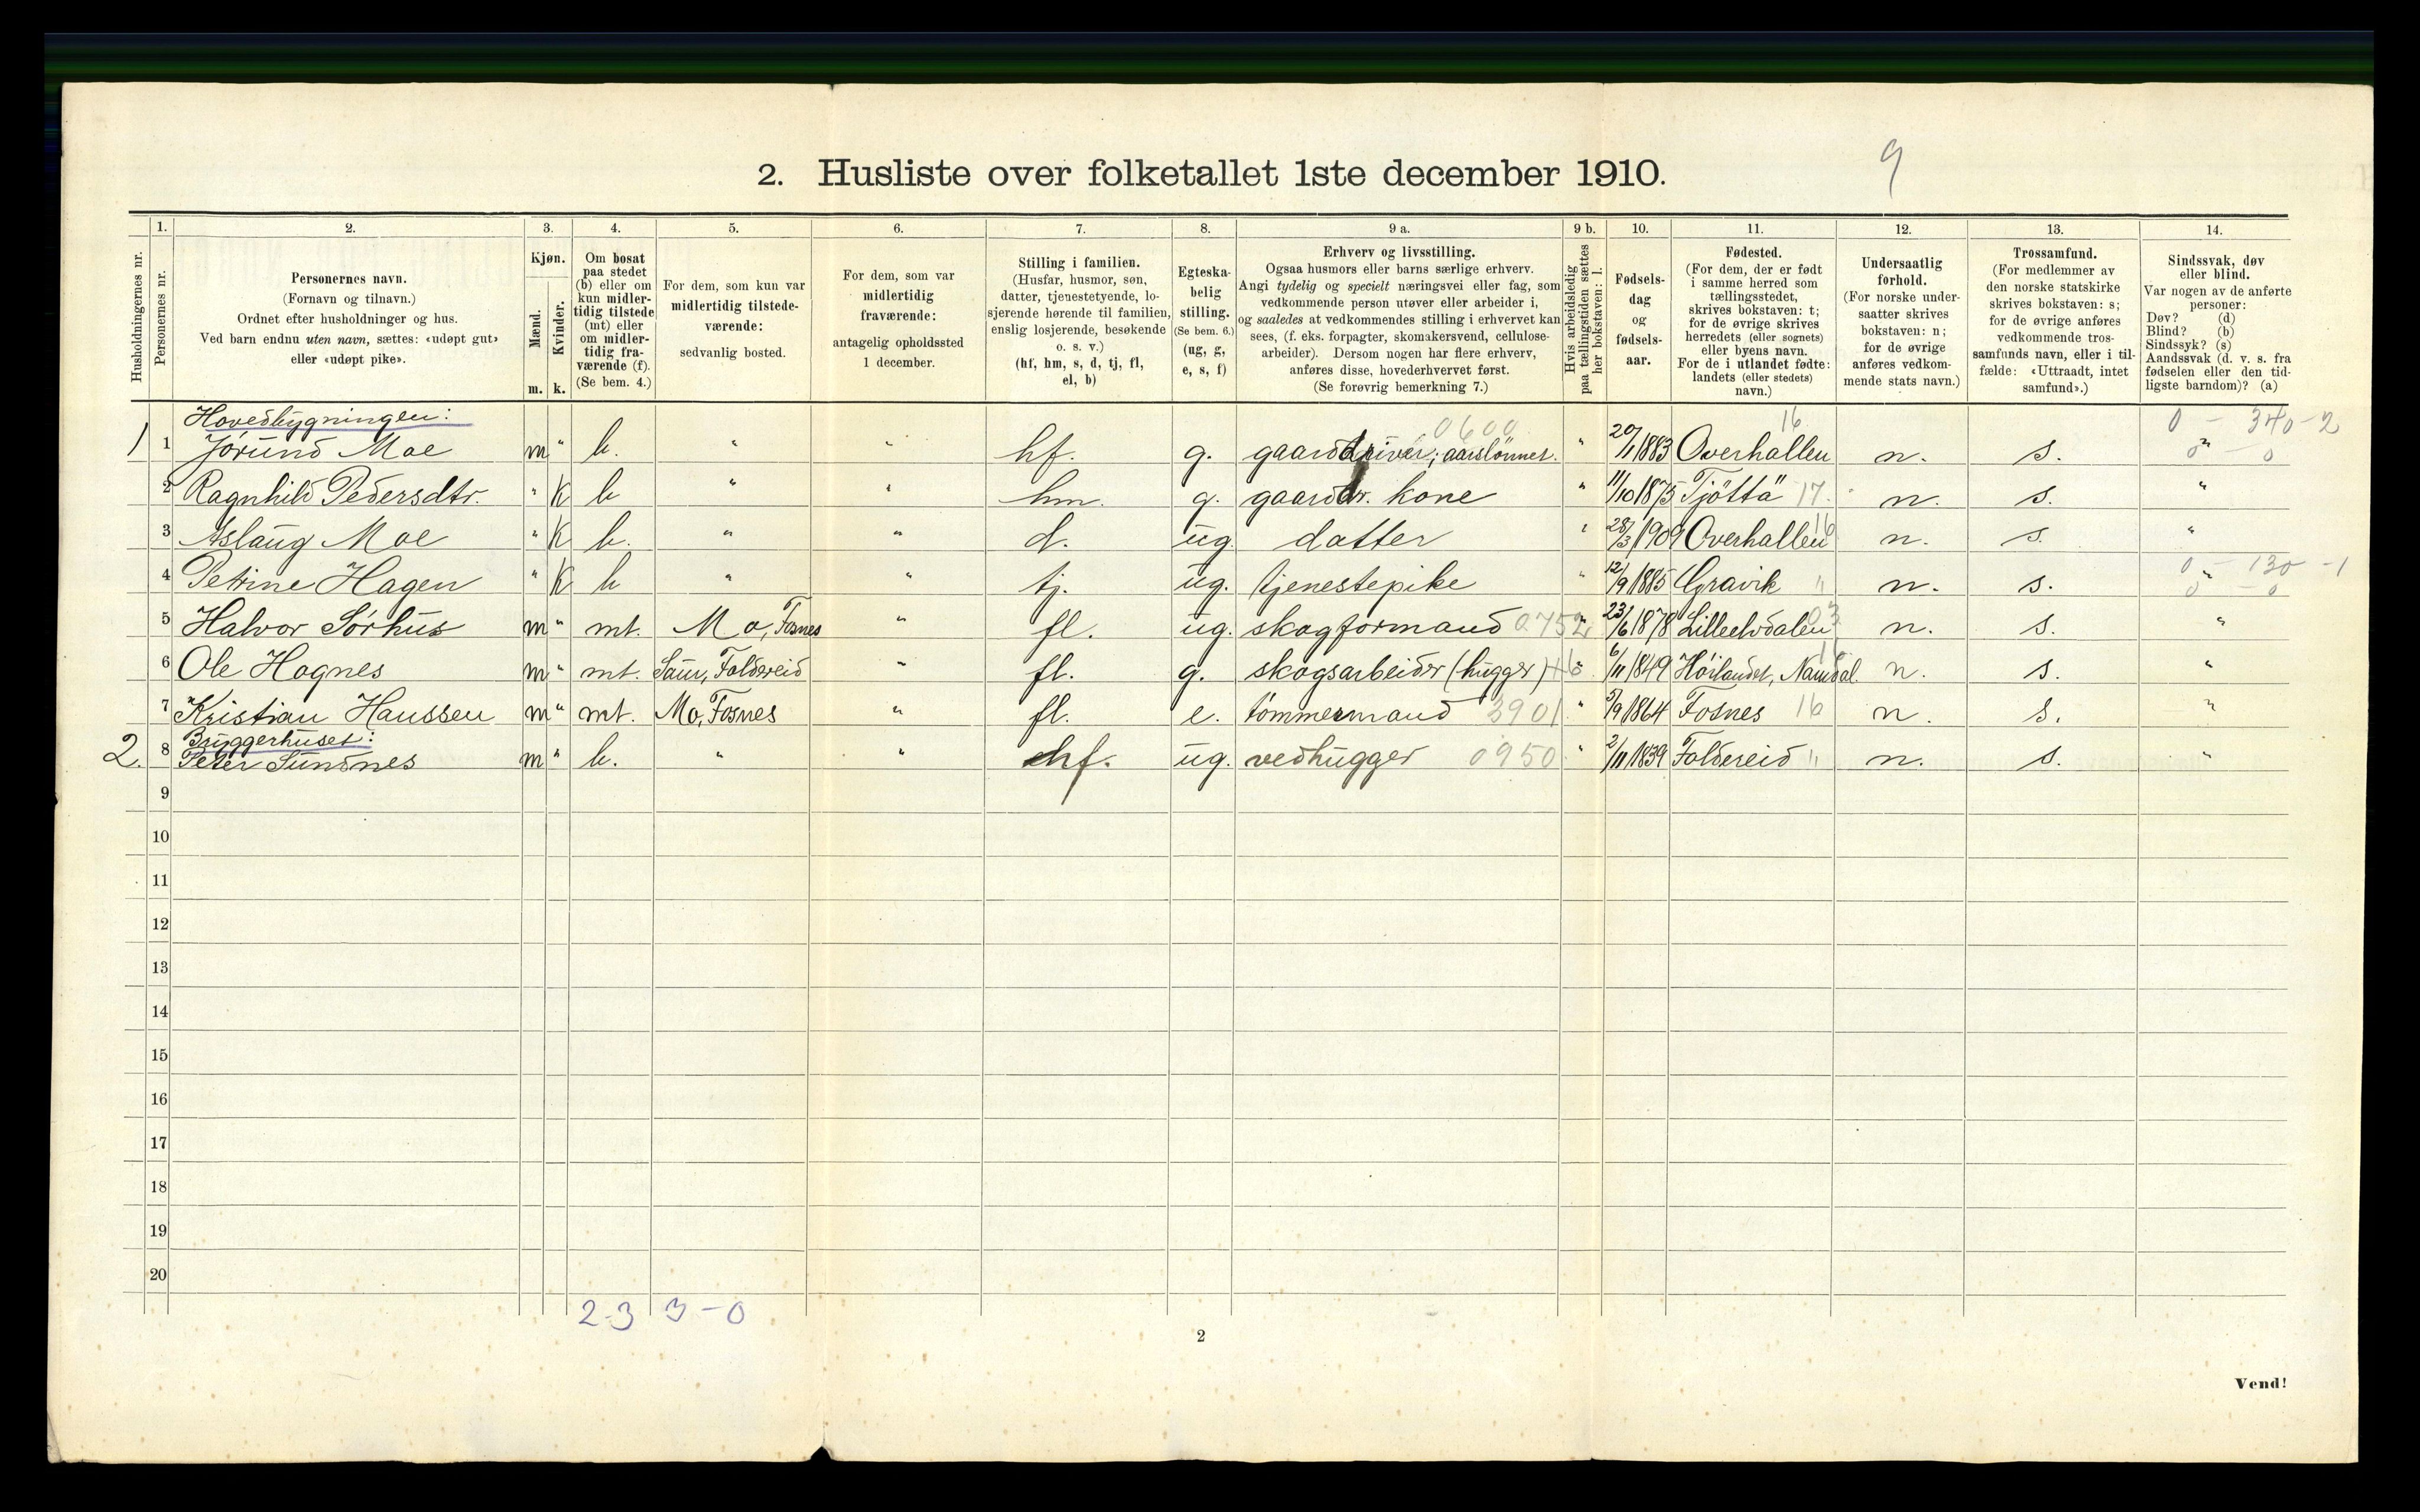 9
2. Husliste over folketallet 1ste december 1910.
Husholdningernes nr.
1. Personernes nr.
2. Personernes navn. (Fornavn og tilnavn.) Ordnet efter husholdninger og hus. Ved barn endnu uten navn, sættes: «udøpt gut» eller «udøpt pike».
3. Kjøn. Mænd. m. Kvinder. k.
4. Om bosat paa stedet (b) eller om kun midlertidig tilstede (mt) eller om midlertidig fraværende (f). (Se bem. 4.)
5. For dem, som kun var midlertidig tilstedeværende: sedvanlig bosted.
6. For dem, som var midlertidig fraværende: antagelig opholdssted 1 december.
7. Stilling i familien. (Husfar, husmor, søn, datter, tjenestetyende, losjerende hørende til familien, enslig losjerende, besøkende o. s. v.) (hf, hm, s, d, tj, fl, el, b)
8. Egteskabelig stilling. (Se bem. 6.) (ug, g, e, s, f)
9 a. Erhverv og livsstilling. Ogsaa husmors eller barns særlige erhverv. Angi tydelig og specielt næringsvei eller fag, som vedkommende person utøver eller arbeider i, og saaledes at vedkommendes stilling i erhvervet kan sees, (f. eks. forpagter, skomakersvend, cellulosearbeider). Dersom nogen har flere erhverv, anføres disse, hovederhvervet først. (Se forøvrig bemerkning 7.)
9 b. Hvis arbeidsledig paa tællingstiden sættes her bokstaven: l.
10. Fødselsdag og fødselsaar.
11. Fødested. (For dem, der er født i samme herred som tællingsstedet, skrives bokstaven: t; for de øvrige skrives herredets (eller sognets) eller byens navn. For de i utlandet fødte: landets (eller stedets) navn.)
12. Undersaatlig forhold. (For norske undersaatter skrives bokstaven: n; for de øvrige anføres vedkommende stats navn.)
13. Trossamfund. (For medlemmer av den norske statskirke skrives bokstaven: s; for de øvrige anføres vedkommende trossamfunds navn, eller i tilfælde: «Uttraadt, intet samfund».)
14. Sindssvak, døv eller blind. Var nogen av de anførte personer: Døv? (d) Blind? (b) Sindssyk? (s) Aandssvak (d. v. s. fra fødselen eller den tidligste barndom)? (a)
Hovedbygningen: 0600 16 0 - 340-2
1 1 Jørund Moe m " b. " " hf. g. gaarddriver; aarslønnet. " 20/1 1883 Overhallen n. s. " 0 - 0
2 Ragnhild Pedersdtr. " K b " " hm. g. gaarddr. kone " 11/10 1875 Tjøttä 17 n. s. "
3 Aslaug Moe " K b. " " d. ug. datter " 28/3 1909 Overhallen 16 n. s. "
4 Petrine Hagen " K b " " tj. ug. tjenestepike " 12/9 1885 Gravik " n. s. " 0 - 130 - 1 0 - 0
5 Halvor Sørhus m " mt. Mo, Fosnes " fl. ug. skogformand 0752 " 23/6 1878 Lilleelvdalen 03 n. s. "
6 Ole Hognes m " mt. Foldereid " fl. g. skogsarbeider (hugger) " 6/11 1849 Høilandet, Namdal. 16 n. s. "
7 Kristian Hanssen m " mt. Mo, Fosnes " fl. e. tømmermand 3901 " 1864 Fosnes 16 n. s. "
Bryggerhuset:
2. 8 Peter Sundnes m " b. " " hf. ug. vedhugger 0950 " 2/11 1839 Foldereid " n. s. "
9
10
11
12
13
14
15
16
17
18
19
20
2-3 3-0
2
Vend!